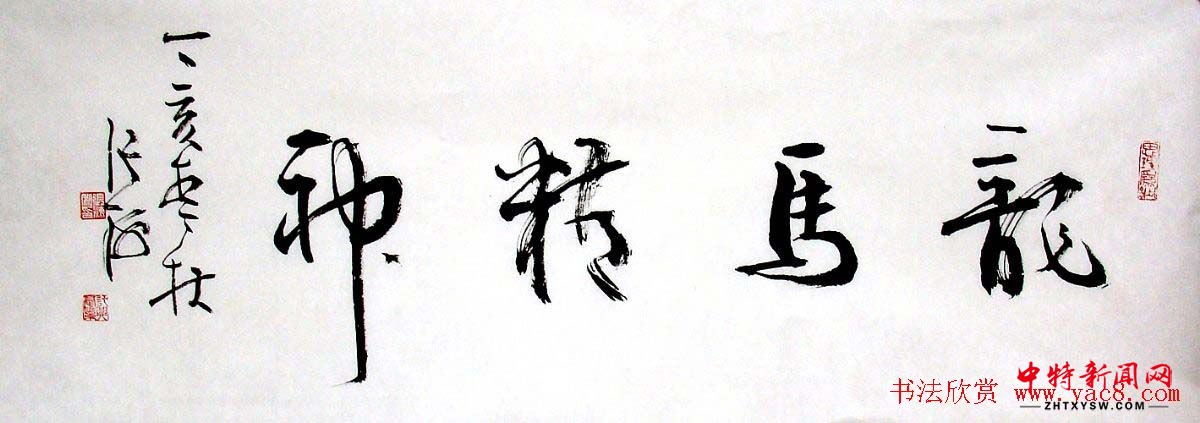 龍馬精神
丁亥
中特新闻网
书法欣赏 www.yac8.com
ZHTXYSW.COM